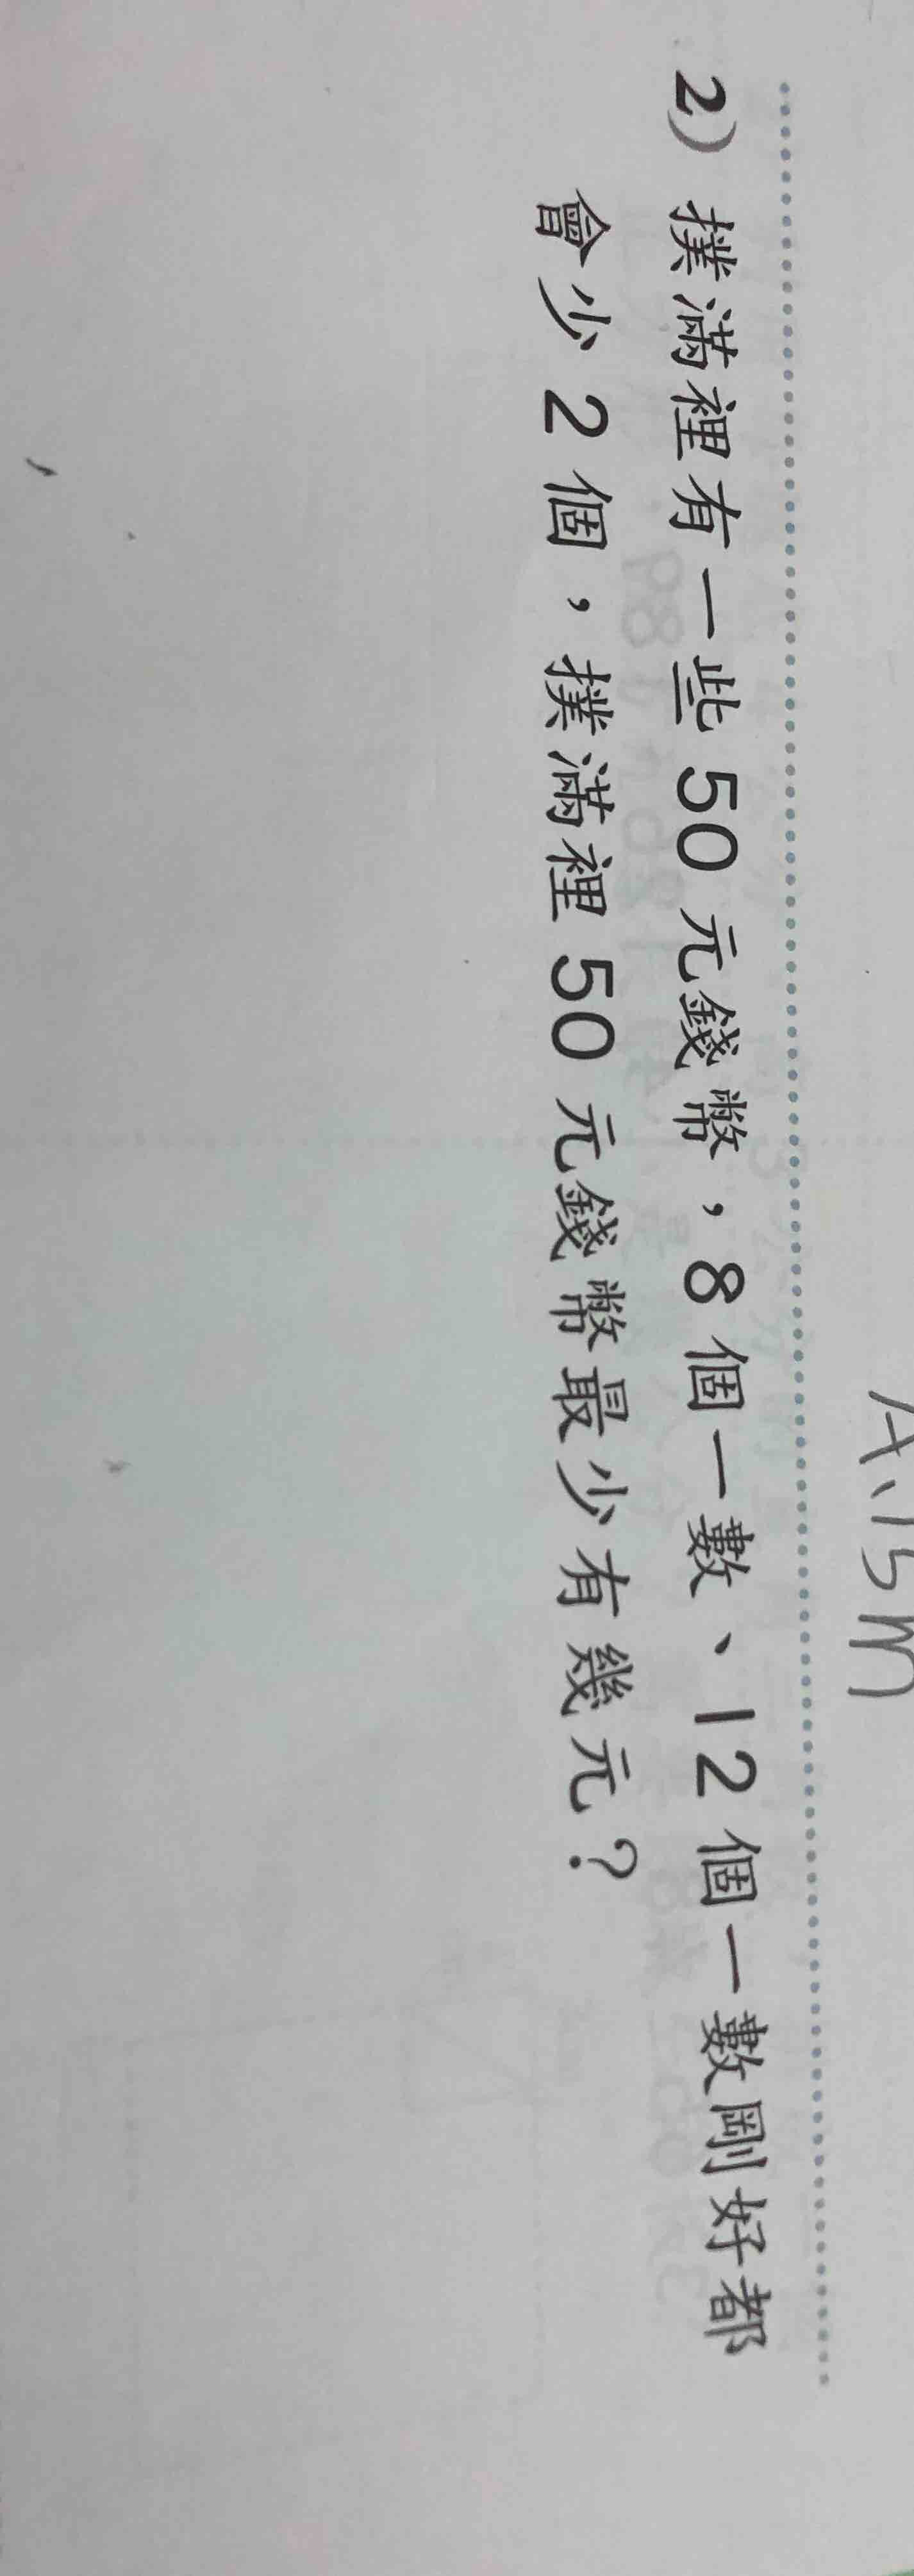 A、15m
2) 撲滿裡有一些50元錢幣，8個一數、12個一數剛好都
會少2個，撲滿裡50元錢幣最少有幾元？